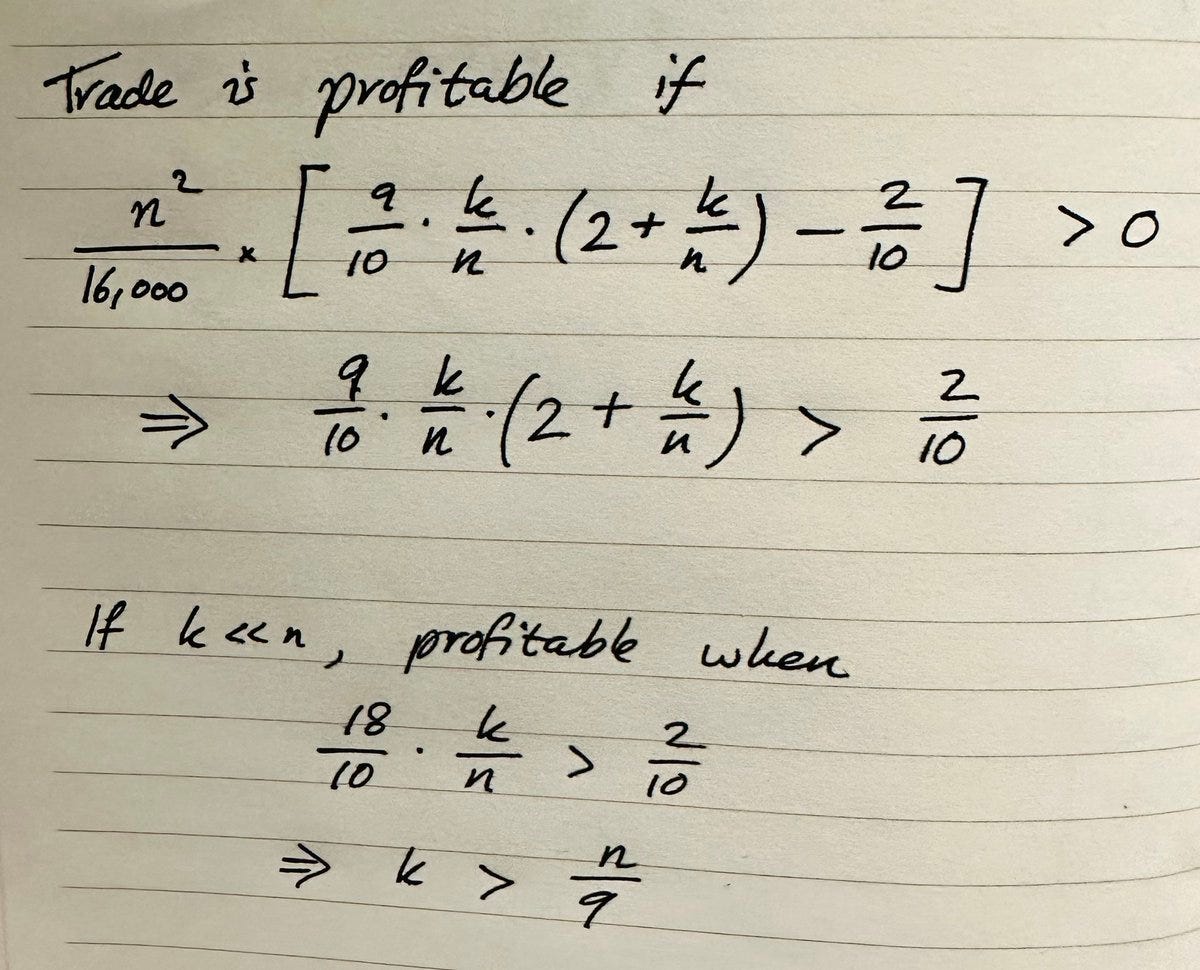 Trade is profitable if
n²/16,000 × [ 9/10 · k/n · (2 + k/n) − 2/10 ] > 0
⇒ 9/10 · k/n · (2 + k/n) > 2/10
If k << n, profitable when
18/10 · k/n > 2/10
⇒ k > n/9